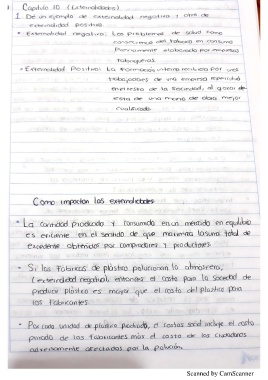 Capitulo 10 (Externalidades)
I. De un ejemplo de externalidad negativa y otro de
externalidad positiva.
* Externalidad negativa: Los problemas de salud como
consecuencia del tabaco en consumo
elaborado por empresas
tabaqueras
* Externalidad Positiva: La formación interna recibida por
trabajadores de una empresa
en el resto de la Sociedad, al gozar de
esta de una mano de obra mejor
cualificado.
Como impactan las externalidades
* La cantidad producida y consumida en un mercado en equilibrio
es eficiente en el sentido de que maximiza la suma total de
excedente obtenidos por compradores y productores
* Si las Fabricas de plástico polucionan la atmosfera,
(externalidad negativa), entonces el costo para la sociedad de
producir plástico es mayor que el costo del plástico para
los Fabricantes.
* Por cada unidad de plástico producido, el costo social incluye el costo
privado de los fabricantes más el costo de los ciudadanos
adversamente afectados por la polución.
Scanned by CamScanner